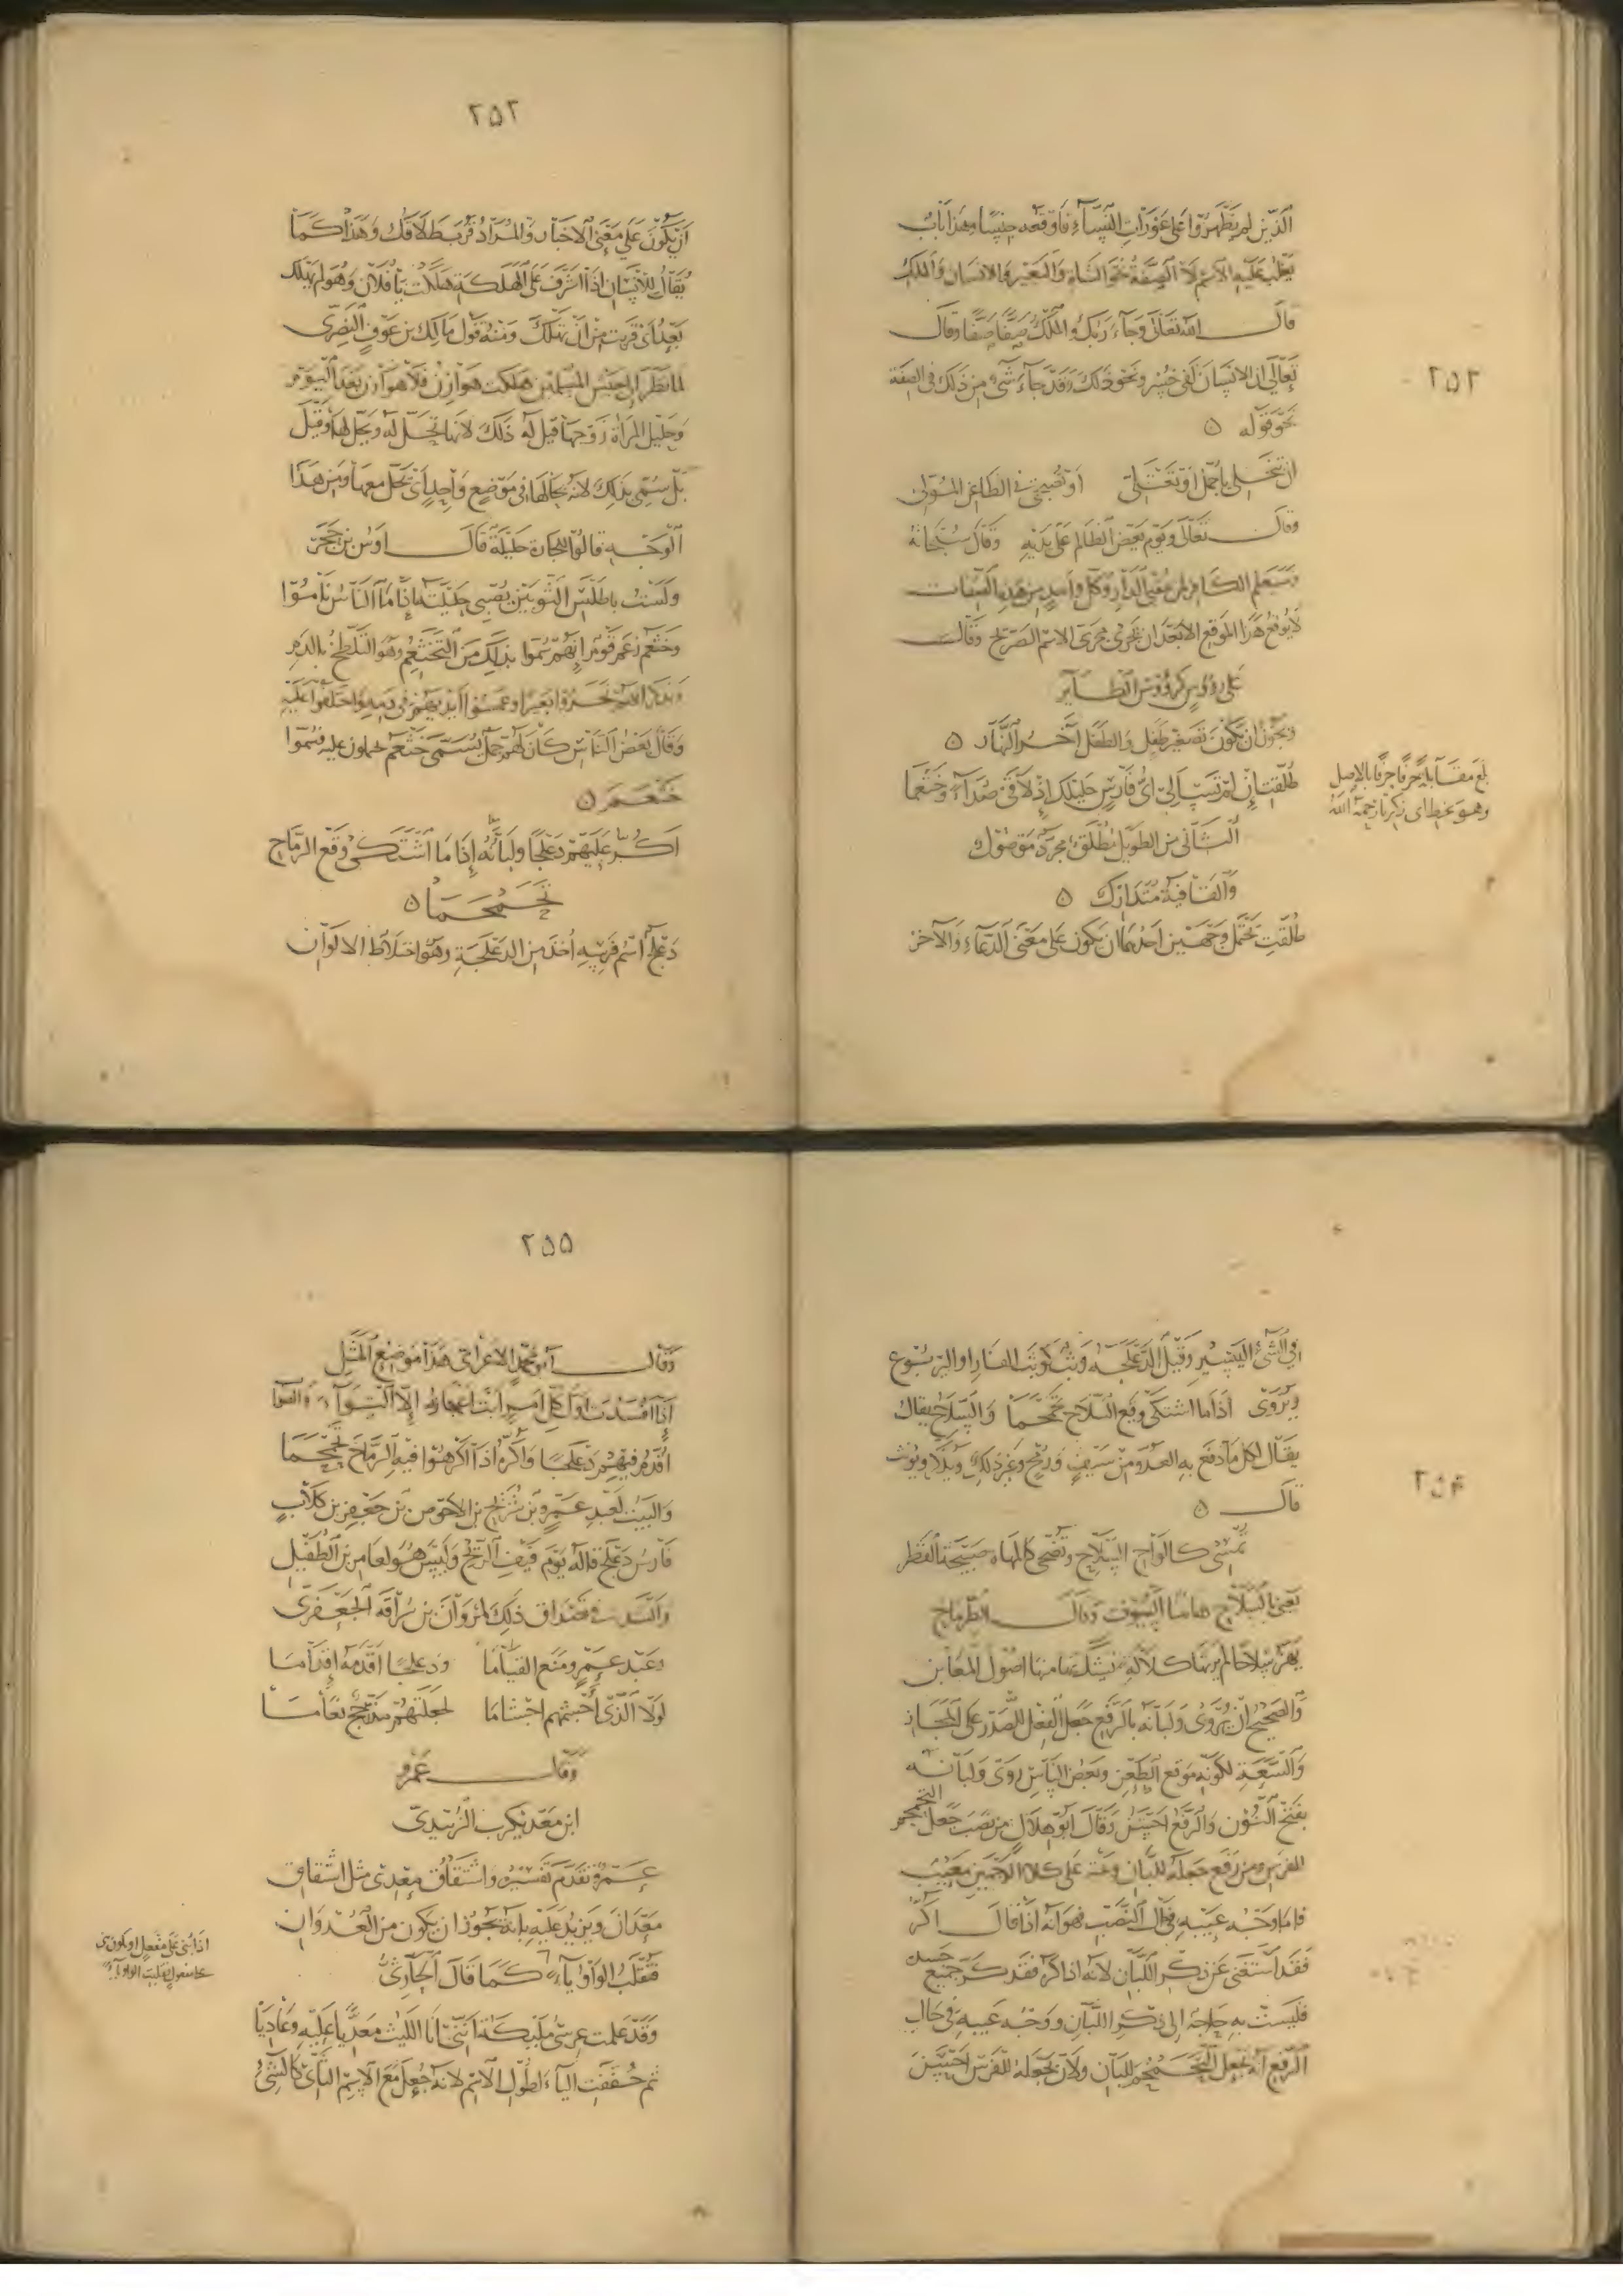 ٢٥٢
الَّذِينَ لم يَظْهَرُوا عَلَى عَوْرَاتِ النِّسَآءِ فَاَوْقَعَه جِنْسًا وهَذا بَابٌ
يَغْلِبُ عَلَيْهِ الاِسْمُ لَا الصِّفَةُ نَحْوَ الشَّاةِ وَالبَعِيْرِ وَالاِنْسَانِ وَالمَلَكِ
قالَ اللّه تَعَالَى وَجَآءَ رَبُّكَ وَالمَلَكُ صَفًّا صَفًّا وقالَ
تَعَالَى اِنَّ الاِنْسَانَ لَفِى خُسْرٍ ونَحْو ذَلكَ وَقَدْ جَآءَ شَىْءٌ مِنْ ذَلكَ فى الصِفَة
نَحْو قَوْلِه ۝
اِن تَبْخَلِى يا جُمْلُ اَوْ تَعْتَلِّى اَوْ تُصْبِحِى فى الظَاعِنِ المُوَلِّى
وقالَ تَعَالَى وَيَوْمَ يَعَضُّ الظَّالِمُ عَلَى يَدَيْهِ وَقَالَ سُبْحَانَهُ
وَسَيَعْلَمُ الكَافِرُ لِمَن عُقْبَى الدَّارِ وكلُّ وَاحِدٍ مِن هَذِهِ الصِّفَات
لَا يُوقَعُ هَذَا المَوْقِعَ الاّ بَعْدَ اَنْ يَجْرِىَ مَجْرَى الاِسْمِ الصَّرِيْحِ وَقَالَ
عَلَى رُؤوسٍ كَرُؤوسِ الطَّايرِ
ويَجُوْزُ اَن يَكُونَ تَصْغِيرَ طَفَلٍ وَالطَفَلُ آخِرُ النَّهَار ۝
طُلِّقْتِ اِن لَمْ تَسْاَلِى اَىُّ فَارِسٍ حَلِيْلُكِ اِذْ لَاقَى صُدَآءً وَخَثْعَمَا
الثَّانى مِن الطَوِيلِ مُطْلَقٌ مُجَرَّدٌ مَوْصُولٌ
وَالقَافِيَةُ مُتَدَارِكٌ ۝
طُلِّقْتِ يَحْتَمِل وَجْهَيْنِ اَحَدُهُمَا ان يَكُونَ عَلَى مَعْنَى الدُّعَآءِ وَالآخَرُ
بلغ مقابلة حرفًا حرفًا بالاصل
وهو بخط ابى زكريا رحمه اللّه
٢٥٣
اَنْ يَكُوْنَ عَلَى مَعْنَى الاِخْبَارِ وَالمُرَادُ قَرُبَ طَلَاقُكِ وَهَذَا كَمَا
يُقَالُ لِلاِنْسَانِ اِذَا اَشْرَفَ عَلَى الهَلَكَةِ هَلَكْتَ يَا فُلَانُ وَهُوَ لم يَهْلِك
بَعْدُ اَىْ قَرُبْتَ مِنْ اَنْ تَهْلِكَ وَمِنْهُ قَوْل مَالِك بن عَوْفٍ النَّصْرِى
لما نَظَرَ اِلى جَيْشِ المُسْلِمين هَلَكت هَوَازِنُ فلا هَوَازِنَ بَعْدَ اليَوْمِ
وَحَلِيْلُ المَرْاَةِ زَوْجُهَا قِيلَ لَه ذَلكَ لاَنها تَحِلُّ لَه ويَحِلُّ لَهَا وقِيْلَ
بَلْ سُمِّى بذلِكَ لانهُ يُحَالُّهَا فى مَوْضِعٍ وَاحِدٍ اَىْ يَحُلُّ مَعهَا ومِن هَذَا
الوَجْهِ قالُوا لِلجَارَةِ حَلِيْلَة قَالَ اَوْسُ بن حَجَرٍ
ولَسْتُ باطْلَسِ الثَّوْبَيْن يُصْبِى حَلِيْلَتَه اِذَا مَا النَّاسُ نَامُوْا
وخَثْعَم زعَمَ قَوْمٌ اِنهم سُمُّوا بذلِكَ مِنَ التَّخَثْعُم وهُوَ التَلَطُّخُ بالدَمِ
وَذلكَ اَنَّهُم نَحَرُوا بَعِيْرًا وغَمَسُوا اَيْدِيَهُمْ فى دَمِهِ وَتحَالَفُوا عَلَيْهِ
وَقَالَ بَعْضُ النَّاسِ كَانَ لَهُم جَمَلٌ يُسَمَّى خَثْعَم يحملون عليه فَسُمُّوا
خَثْعَمَ ۝
اَكُرُّ عَلَيْهِمُ دَعْلَجًا ولَبَانُهُ اِذَا مَا اشْتَكَى وَقْعَ الرِّمَاح
تَحَمْحَمَا ۝
دَعْلَج اسْمُ فَرَسِه اُخِذَ مِن الدَعْلَجَةِ وهُوَ اخْتِلَاطُ الالوَان
٢٥٤
فِى الشَىْءِ اليَسِيْرِ وَقِيْلَ الدَعْلَجَه وَثْبٌ كَوَثْبِ الفَارِ او اليَرْبُوْع
ويُرْوَى اذَا مَا اشْتكَى وَقْعَ السِّلَاح تَحَمْحُمَا وَالسِّلَاحُ يقالُ
يُقَال لِكل مَا دُفِعَ بِهِ العَدُوُّ مِنْ سَيْفٍ وَرُمْحٍ وغَيْر ذلكَ ويُذَكَّر ويُؤَنَّث
قالَ ۝
تُمَشِّى كَالْوَاحِ السِّلَاحِ وتُضْحِى كالمَهَاةِ صَبِيْحَةَ القَطْر
يَعْنِى بالسِّلَاحِ هاهنا السُّيُوف وَقالَ الطِّرِمَّاح
يَهُزُّ سِلَاحًا لم يَرِثْهَا كَلَالَةً يَشُكُّ بها مِنها اُصُوْلَ المَغَابِن
وَالصَّحِيْحُ اَنْ يُرْوَى وَلَبَانُه بالرَّفْعِ جَعَلَ الفِعْلَ لِلصَّدْرِ عَلى المَجَاز
وَالسَّعَةِ لِكَوْنِهِ مَوْقِعَ الطَّعْنِ وبَعْضُ النَّاسِ رَوَى ولَبَانَه
بفَتْحِ النُّوْن وَالرَّفْعُ اَحْسَنُ وَقَالَ اَبُو هِلَالٍ مَن نَصَبَ جَعَلَ التحمحم
لِلفَرَسِ ومَن رَفَع جَعَلَهُ لِلَّبَان وعَنه عَلَى كلا الوَجْهَيْن مَعِيْبٌ
فامّا وَجْهُ عَيْبِه فى حَال النَّصْبِ فَهوَ انه اذَا قَالَ اَكُرُّ
فَقَد اسْتَغْنَى عَن ذِكْر اللَّبَانِ لاَنّه اذا كَرَّه فقد كَرَّ جَمِيْعَ جَسَده
فليست بِه حَاجَةٌ اِلى ذِكْرِ اللَّبَانِ ووَجْهُ عَيْبِهِ فى حَال
الرَّفْعِ اَنَّه جَعَلَ التَّحَمْحُمَ لِلَّبَان ولاَنْ يَجْعَلَهُ لِلفَرَسِ اَحْسَنَ
٢٥٥
وَقال اَبُو مُحَمَّدٍ الاَعْرَابِى هَذَا مَوْضِعُ المَثَلِ
اِذَا اَفْسَدَت اَوَّلَ كلّ اَمْرٍ اَبَت اَعْجَازُه اِلَّا الْتِوَآءَ
اُقَدِّمُ فِيْهِمُ دَعْلَجًا وَاَكُرُّهُ اِذَا اَكْرَهُوْا فِيْهِ الرِّمَاحَ تَحَمْحَمَا
وَالبَيْتُ لِعَبْدِ عَمْرِو بْن شُرَيْحِ بن الاَحْوَصِ بْن جَعْفَرِ بن كِلَابٍ
فَارِسُ دَعْلَجٍ قالَهُ يَوْمَ فَيْفِ الرِّيْحِ وَلَيْسَ هُوَ لِعَامِرِ بْن الطُّفَيْلِ
وَالبَيْت فى مِصْدَاقِ ذلكَ لِمَرْوَانَ بن سُرَاقَة الجَعْفَرِى
وعَبْد عَمْرٍو مَنَعَ الفِيَامَا ودَعْلَجًا اَقْدَمَهُ اِقْدَامَا
لَوْلَا الَّذِى اَجْشَمَهُم اِجْشَامَا لَجَعَلَتْهُم مَذْحِجٌ نَعَامَا
وَقَالَ عَمْرُو
ابن مَعْدِ يكَرِب الزُّبَيْدِىّ
عَمْرٌو تَقَدَّم تَفْسِيْرُهُ واشْتِقَاقُ مَعْدِى مِثْل اشْتِقَاقِ
مَعْدَانَ ويَزِيْدُ عَلَيْهِ بِاَنَّه يَجُوْزُ ان يَكُون مِن العُدْوَانِ
فَتُقْلَبُ الوَاوُ يَآءً كَمَا قَالَ الحَارِثِىُّ
وَقَدْ عَلِمت عِرْسِى مُلَيْكَةُ اَنَّنِى اَنَا اللَيْثُ مَعْدِيًّا عَلَيْهِ وعَادِيَا
ثم خُفِّفَت اليآءُ لِطُوْل الاسْمِ لانّه جُعِلَ مَعَ الاِسْمِ الثَّانِى كَالشَىْءِ
اذا بُنى على مفعل او يكون بنى
على مفعول فقلبت الواو ياء